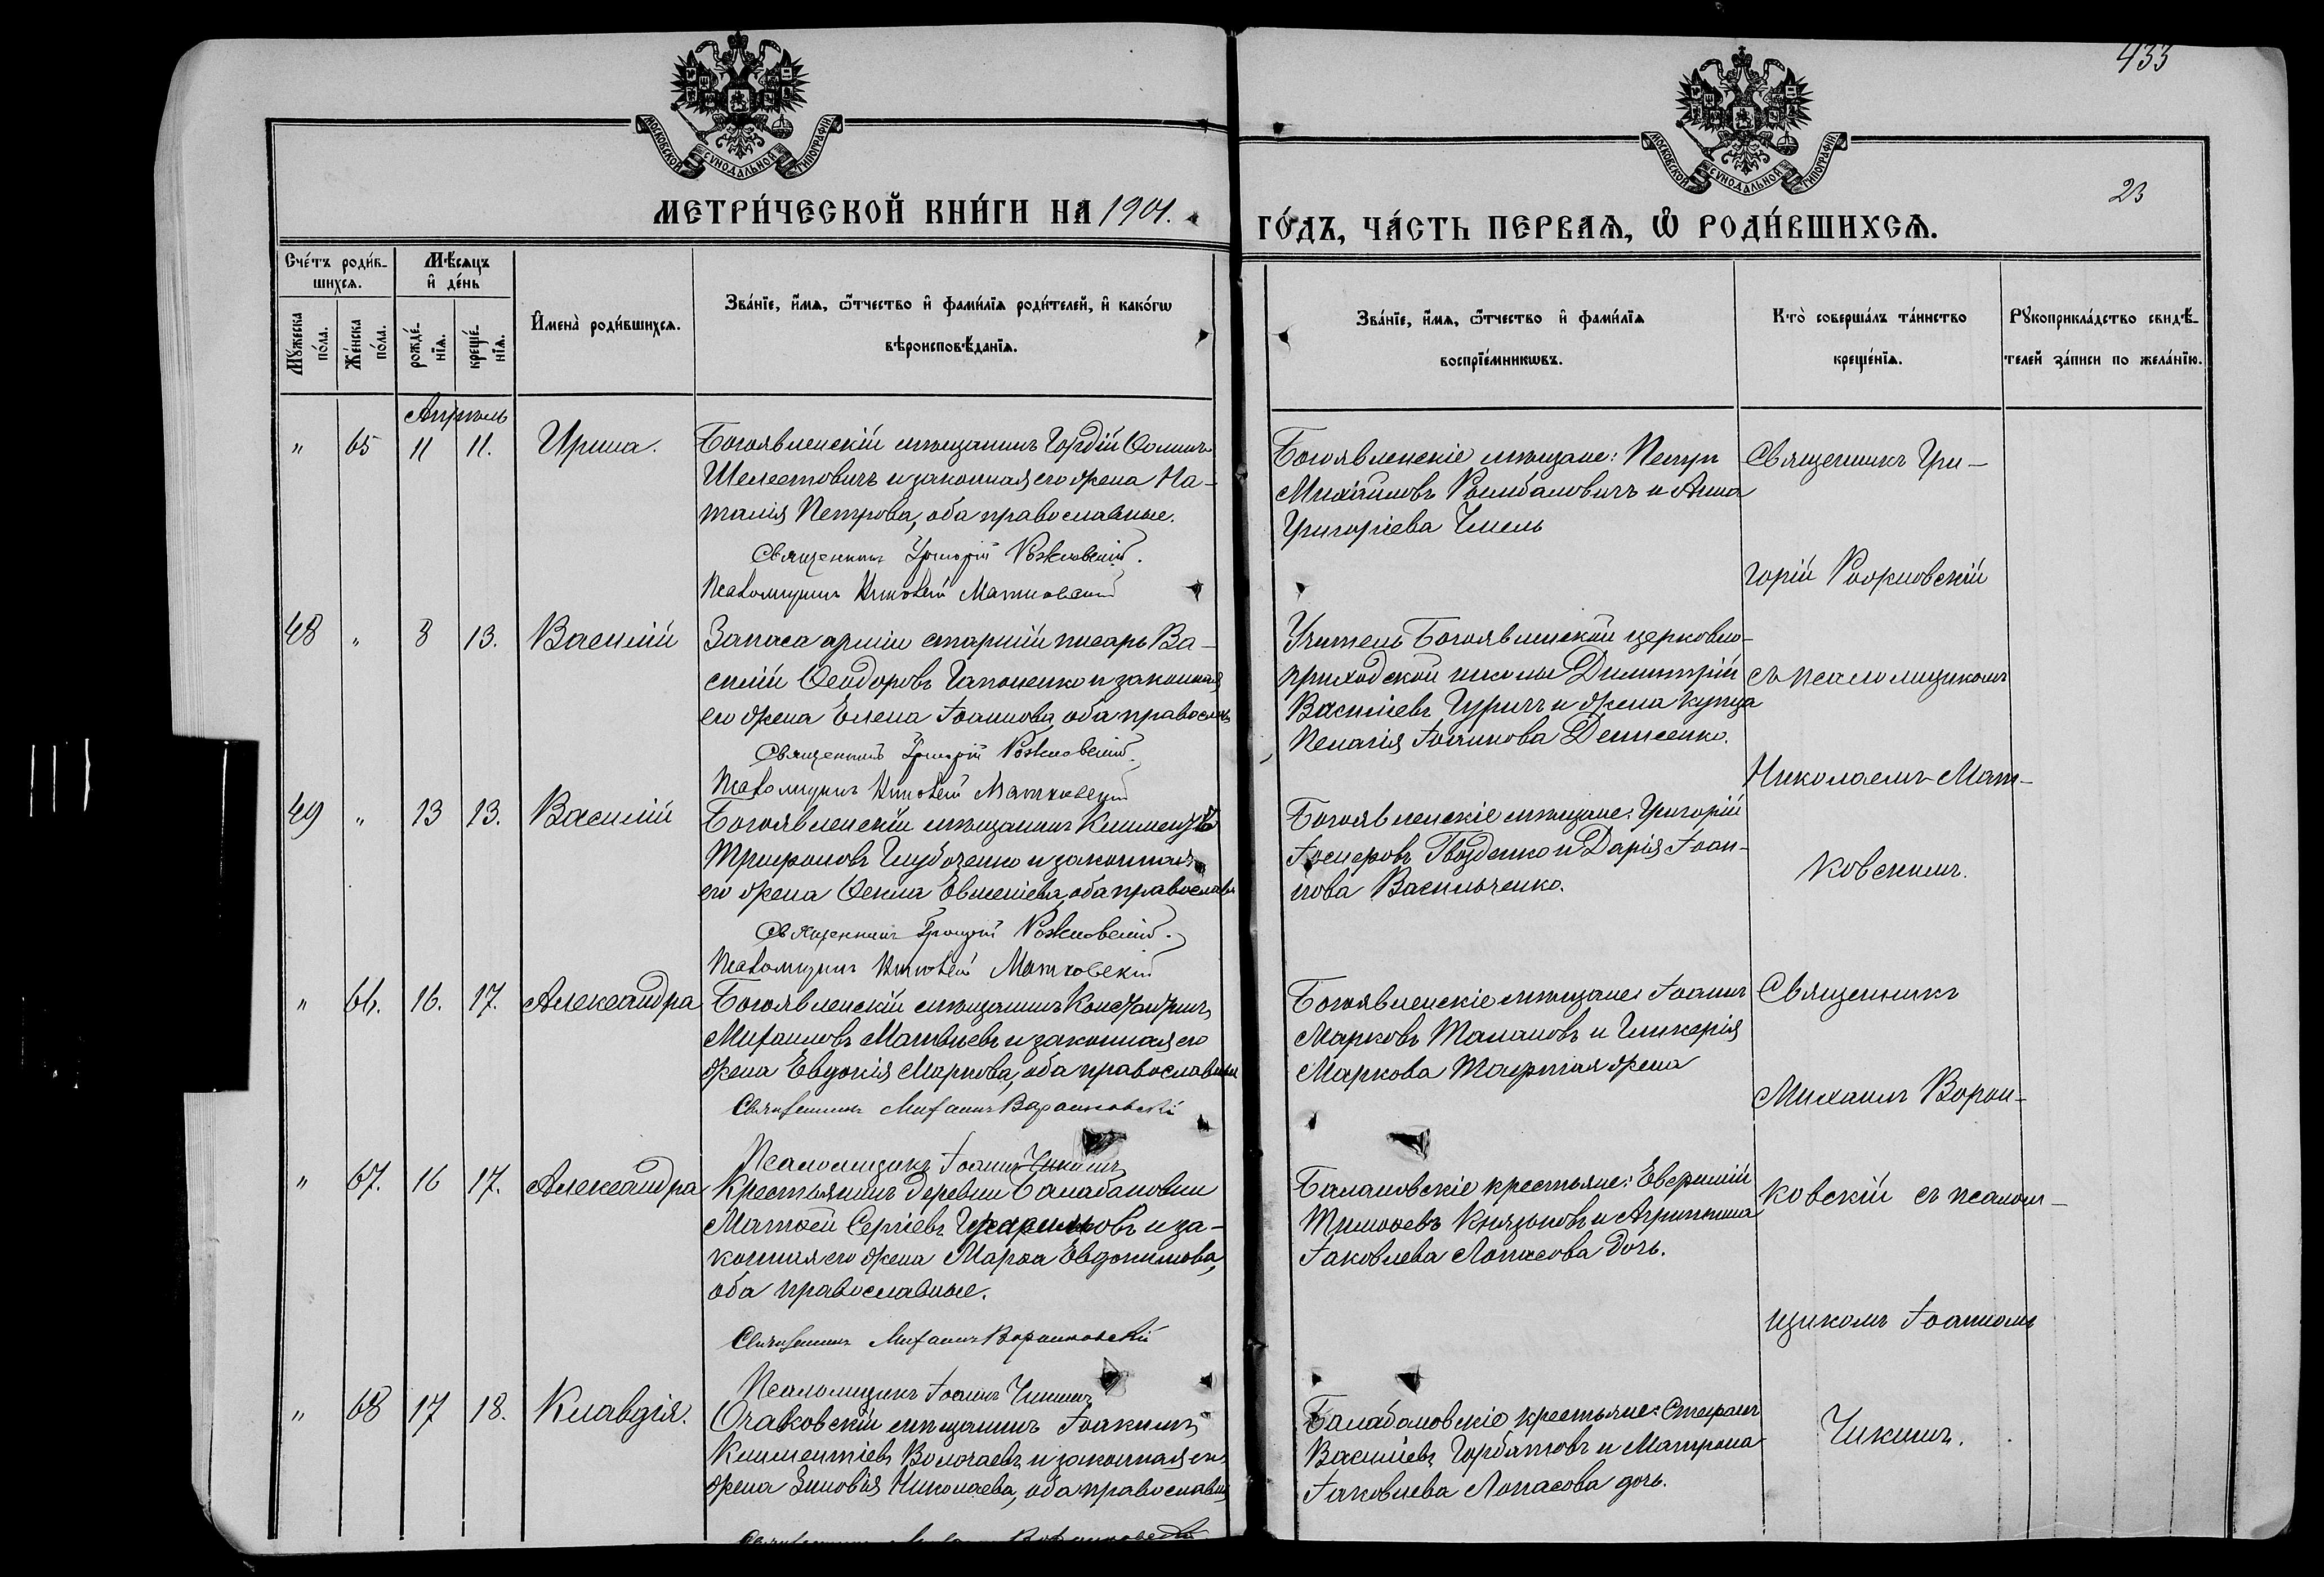 433
МОСКОВСКОЙ СѴНОДАЛЬНОЙ ТИПОГРАФІИ
МОСКОВСКОЙ СѴНОДАЛЬНОЙ ТИПОГРАФІИ
23
МЕТРИ́ЧЕСКОЙ КНИ́ГИ НА 1901.
ГО́ДЪ, ЧА́СТЬ ПЕРВАѦ, Ѡ РОДИ́ВШИХСѦ.
Сче́тъ роди́в-
шихсѧ.
Мѣ́сѧцъ
и де́нь
Мꙋ́жеска
по́ла.
Же́нска
по́ла.
рожде́-
нїѧ.
креще́-
нїѧ.
Имена̀ роди́вшихсѧ.
Зва́нїе, и́мѧ, ѻ́тчество и фами́лїѧ роди́телей, и како́гѡ
вѣроисповѣ́данїѧ.
Зва́нїе, и́мѧ, ѻ́тчество и фами́лїѧ
воспрїе́мникѡвъ.
Кто̀ соверша́лъ та́инство
креще́нїѧ.
Рꙋкоприкла́дство свидѣ́-
телей за́писи по жела́нїю.
Апрѣль
" 65 11 11. Ирина.
Богоявленскій мѣщанинъ Гордій Ѳоминъ
Шелестовичъ и законная его жена На-
талія Петрова, оба православные.
Священникъ Григорій Рожновскій.
Псаломщикъ Николай Матковскій
Богоявленскіе мѣщане: Петръ
Михайловъ Рымбаловичъ и Анна
Григоріева Чмель
Священникъ Гри-
горій Рожновскій
48 " 8 13. Василій
Запаса арміи старшій писарь Ва-
силій Ѳеодоровъ Гапоненко и законная
его жена Елена Іоаннова, оба православн
Священникъ Григорій Рожновскій.
Псаломщикъ Николай Матковскій
Учитель Богоявленской церковно-
приходской школы Димитрій
Васильевъ Гуричъ и жена купца
Пелагія Іоаннова Денисенко.
съ псаломщикомъ
Николаемъ Мат-
49 " 13 13. Василій
Богоявленскій мѣщанинъ Климентъ
Трифоновъ Глубоченко и законная
его жена Ѳекла Евменіева, оба православн
Священникъ Григорій Рожновскій.
Псаломщикъ Николай Матковскій
Богоявленскіе мѣщане: Григорій
Гвозденко и Дарія Іоан-
нова Васильченко.
ковскимъ.
" 66. 16. 17. Александра
Богоявленскій мѣщанинъ
Михаиловъ Матвѣевъ и законная его
жена Евдокія Маркова, оба православные
Священникъ Михаилъ Воронковскій
Псаломщикъ Іоаннъ Чикинъ
Богоявленскіе мѣщане: Іоаннъ
Марковъ Талановъ и Гликерія
Маркова жена
Священникъ
Михаилъ Ворон-
" 67. 16 17. Александра
Крестьянинъ деревни Балабановки
Матѳей Сергіевъ и за-
конная его жена Марѳа Евдокимова,
оба православные.
Священникъ Михаилъ Воронковскій
Псаломщикъ Іоаннъ Чикинъ
крестьяне: Евфимій
Тимоѳеевъ Князьковъ и Агриппина
Іаковлева Лопасова дочь.
ковскій съ псалом-
щикомъ Іоанномъ
" 68 17 18. Клавдія.
Очаковскій мѣщанинъ Іоакимъ
Климентіевъ Волочаевъ и законная его
жена Зиновія Николаева, оба православн
Балабановскіе крестьяне: Стефанъ
Васильевъ Горбатовъ и Матрона
Іаковлева Лопасова дочь.
Чикинъ.